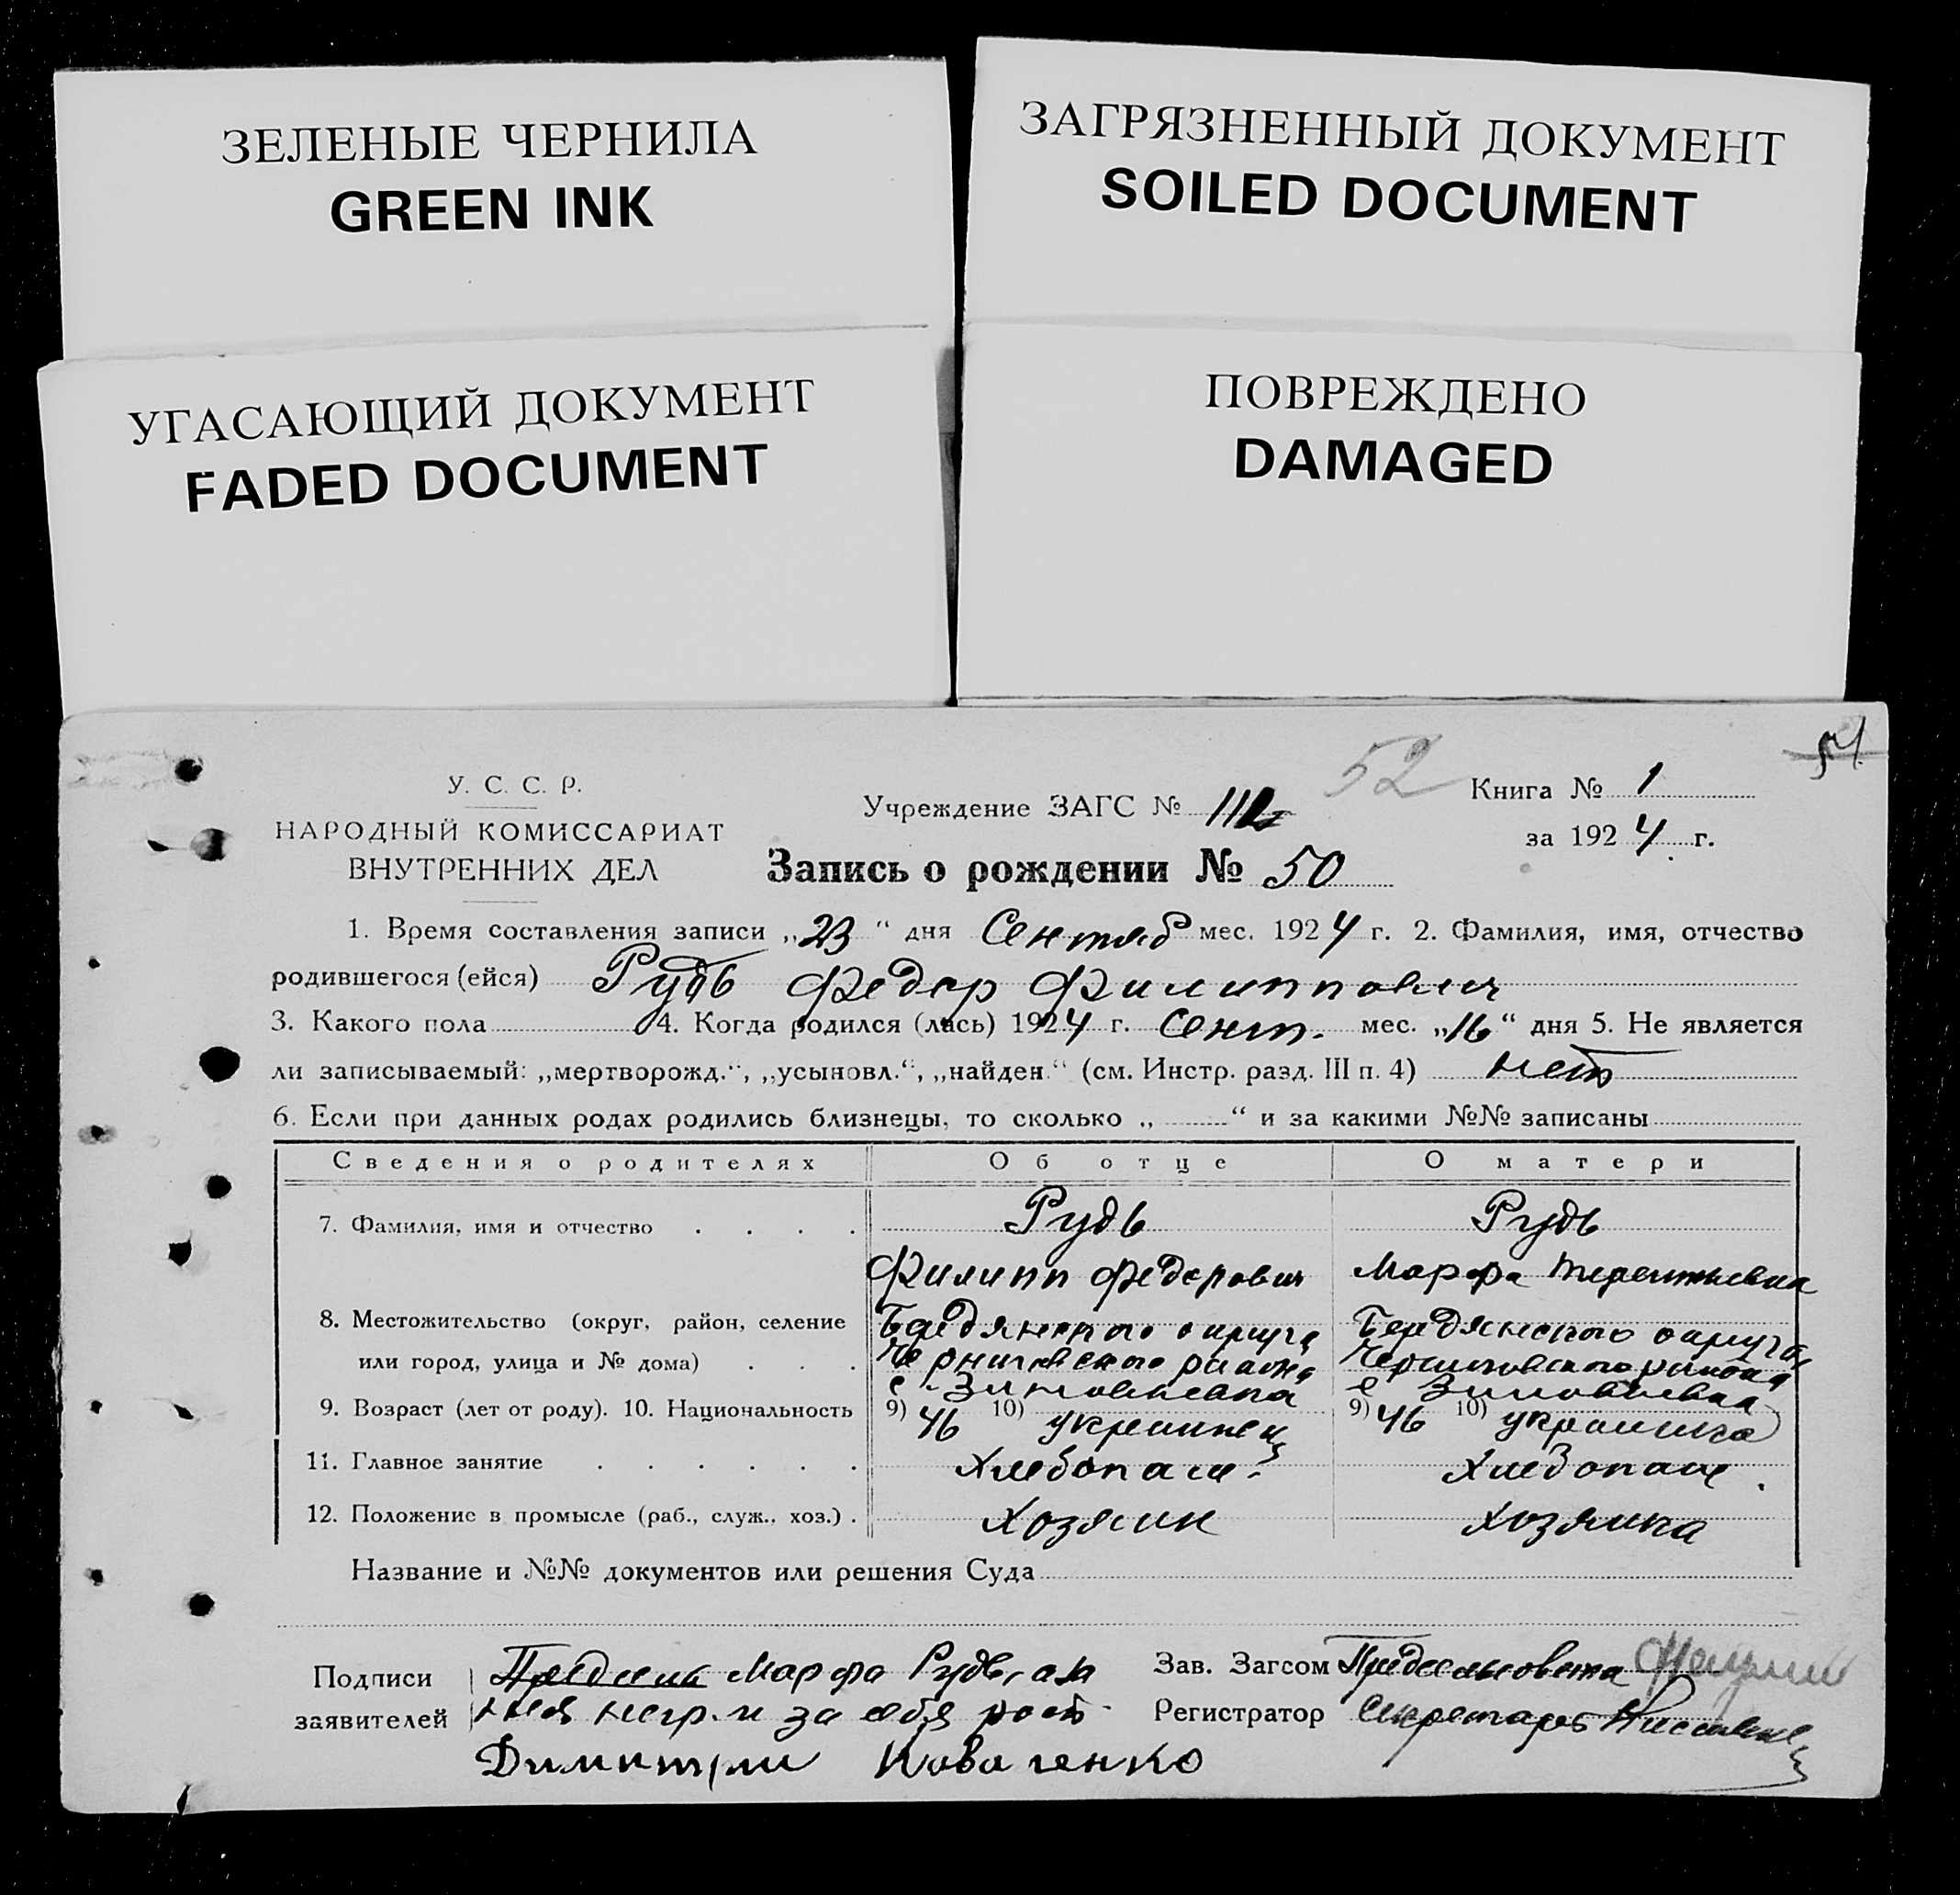 ЗЕЛЕНЫЕ ЧЕРНИЛА
GREEN INK
ЗАГРЯЗНЕННЫЙ ДОКУМЕНТ
SOILED DOCUMENT
УГАСАЮЩИЙ ДОКУМЕНТ
FADED DOCUMENT
ПОВРЕЖДЕНО
DAMAGED
У. С. С. Р.
НАРОДНЫЙ КОМИССАРИАТ
ВНУТРЕННИХ ДЕЛ
Учреждение ЗАГС №
52
Книга № 1
за 1924 г.
Запись о рождении № 50
1. Время составления записи „23“ дня Сентяб мес. 1924 г. 2. Фамилия, имя, отчество
родившегося (ейся) Рудь Федор Филиппович
3. Какого пола 4. Когда родился (лась) 1924 г. Сент. мес. „16“ дня 5. Не является
ли записываемый: „мертворожд.“, „усыновл.“, „найден.“ (см. Инстр. разд. III п. 4) нет
6. Если при данных родах родились близнецы, то сколько „ “ и за какими №№ записаны
Сведения о родителях Об отце О матери
7. Фамилия, имя и отчество Рудь Рудь
Филипп Федорович Марфа Терентьевна
8. Местожительство (округ, район, селение Бердянского округа Бердянского округа
или город, улица и № дома) Черниговского района Черниговского района
с. с
9. Возраст (лет от роду). 10. Национальность 9) 46 10) украинец 9) 46 10) украинка
11. Главное занятие Хлебопаш. Хлебопаш.
12. Положение в промысле (раб., служ., хоз.) Хозяин Хозяйка
Название и №№ документов или решения Суда
Подписи Марфа Рудь, а за Зав. Загсом Предсельсовета
заявителей нея негр. и за себя рост Регистратор Секретарь
Димитрий Коваченко